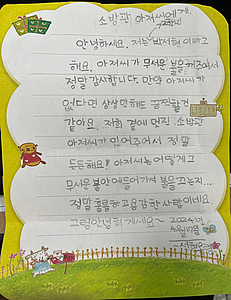 소방관 아저씨에게
안녕하세요. 저는 박서현 이라고
해요. 아저씨가 무서운 불을 꺼주어서
정말 감사합니다. 만약 아저씨가
없다면 상상만해도 끔찍할것
같아요. 저희 곁에 멋진 소방관
아저씨가 있어주어서 정말
든든해요!! 아저씨는 어떻게그
무서운 불안에들어가셔 불을끄는지....
정말 훌륭하고용감한 사람이네요.
그럼안녕히계세요~ 2024년
4월17일